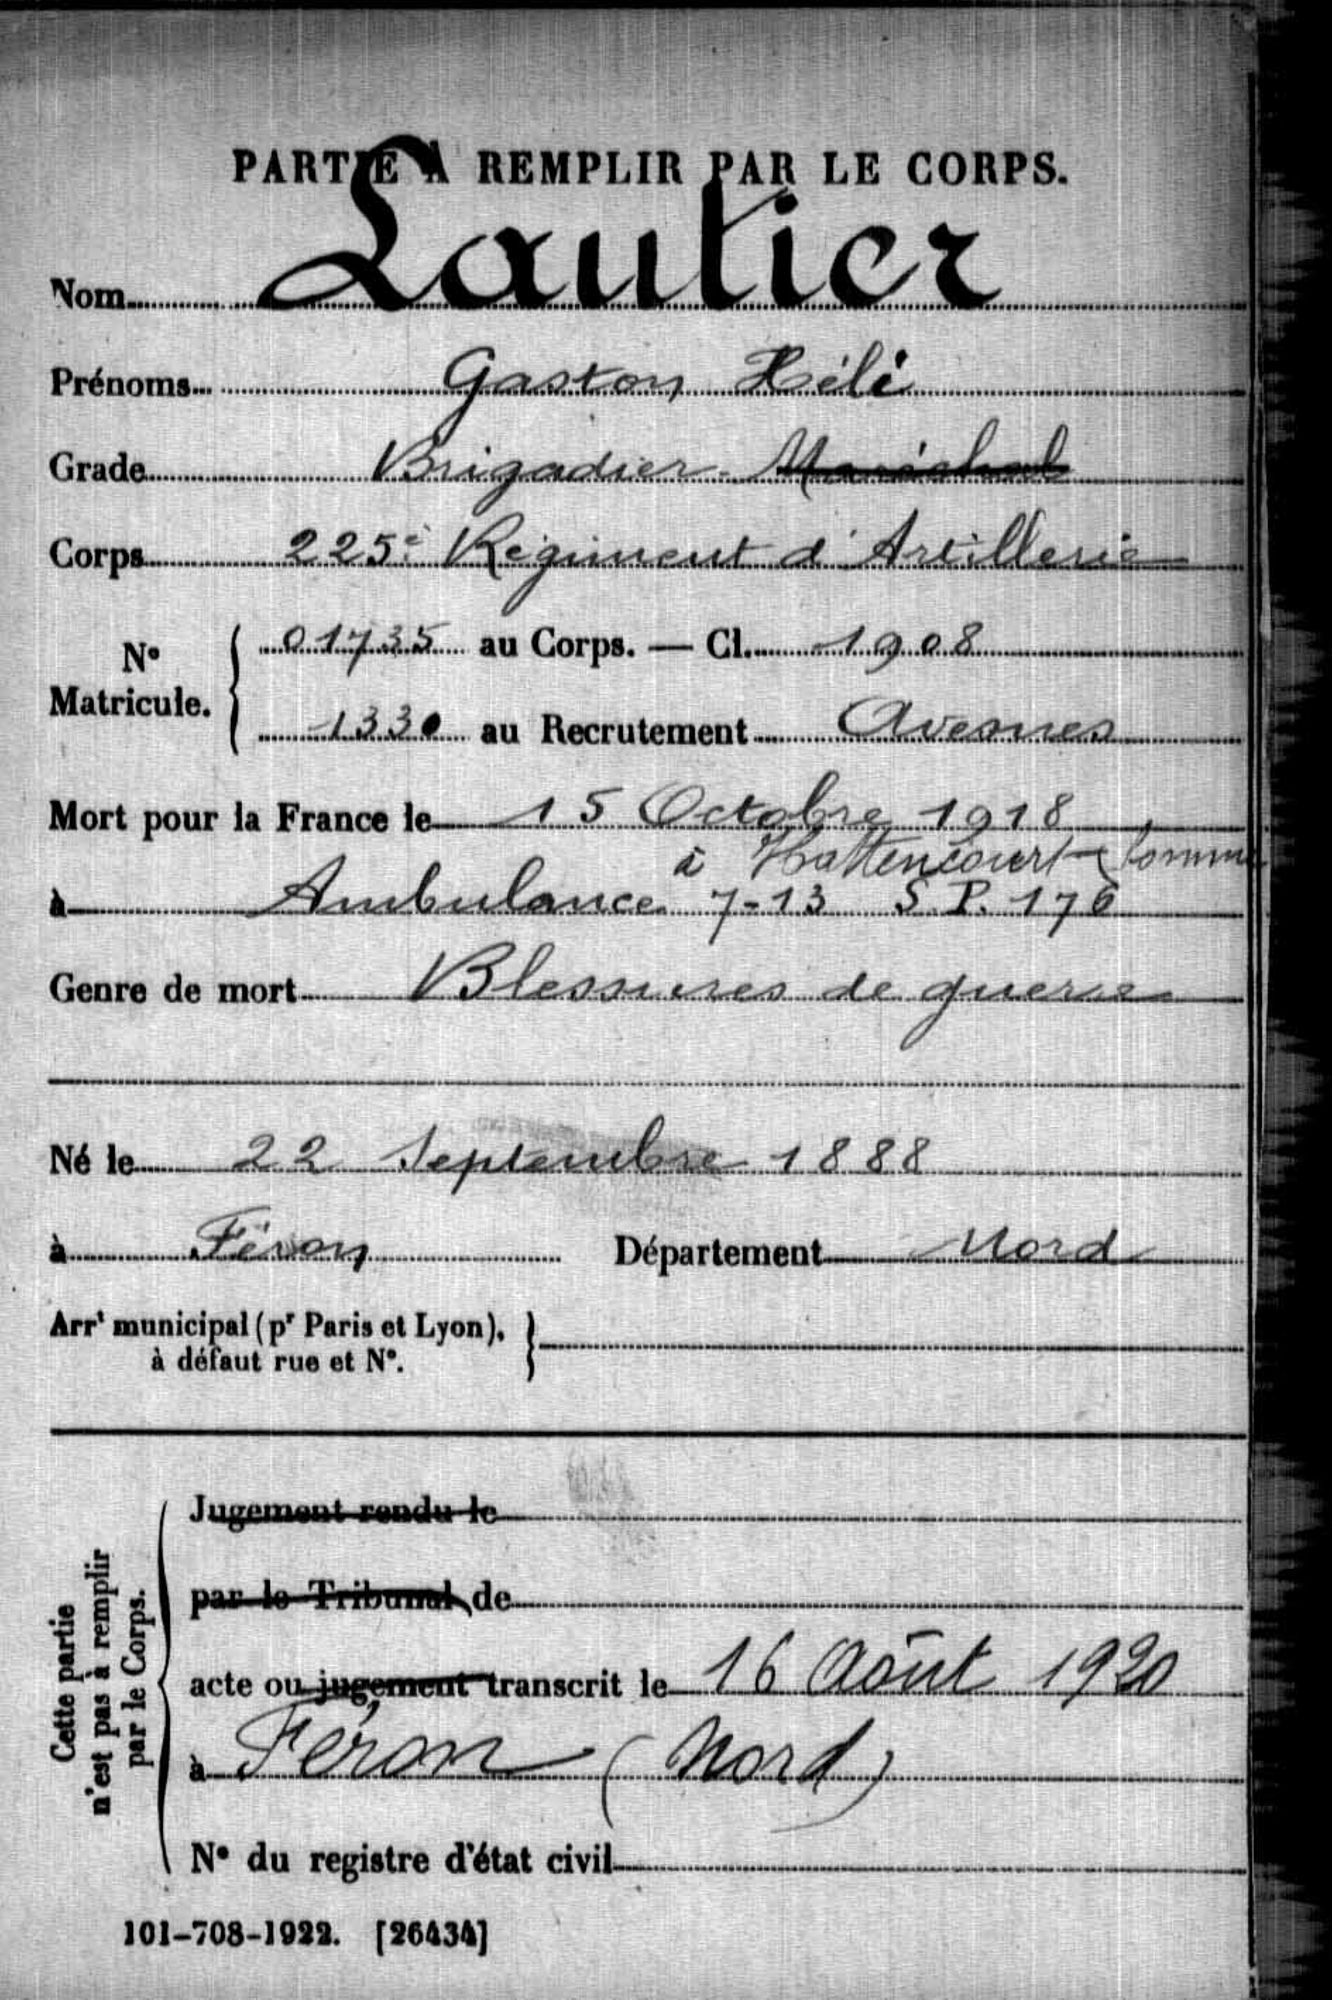 PARTIE À REMPLIR PAR LE CORPS.
Nom Lautier
Prénoms Gaston Héli
Grade Brigadier - Maréchal
Corps 225e Régiment d'Artillerie
No Matricule. { 01735 au Corps. — Cl. 1908
1330 au Recrutement Avesnes
Mort pour la France le 15 Octobre 1918
à Hattencourt Somme
à Ambulance 7-13 S.P. 176
Genre de mort Blessures de guerre
Né le 22 Septembre 1888
à Féron Département Nord
Arrt municipal (pr Paris et Lyon),
à défaut rue et No.
Cette partie
n'est pas à remplir
par le Corps.
Jugement rendu le
par le Tribunal de
acte ou jugement transcrit le 16 Août 1920
à Féron (Nord)
No du registre d'état civil
101-708-1922. [26434]